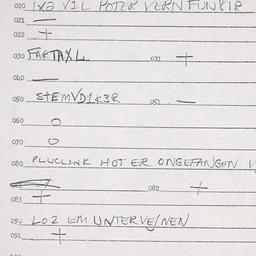 020 1X2 V1L POTER VERN FUNKIR
021 —
022 +
030 FARTAXL 031 +
040 —
050 STEMVD1K3R 051 —
060 O
070 O
080 PLUCLINK HOT ER ONGEFANGEN
082 +
083 +
092 LO2 EM UNTERVEJNEN
051 +